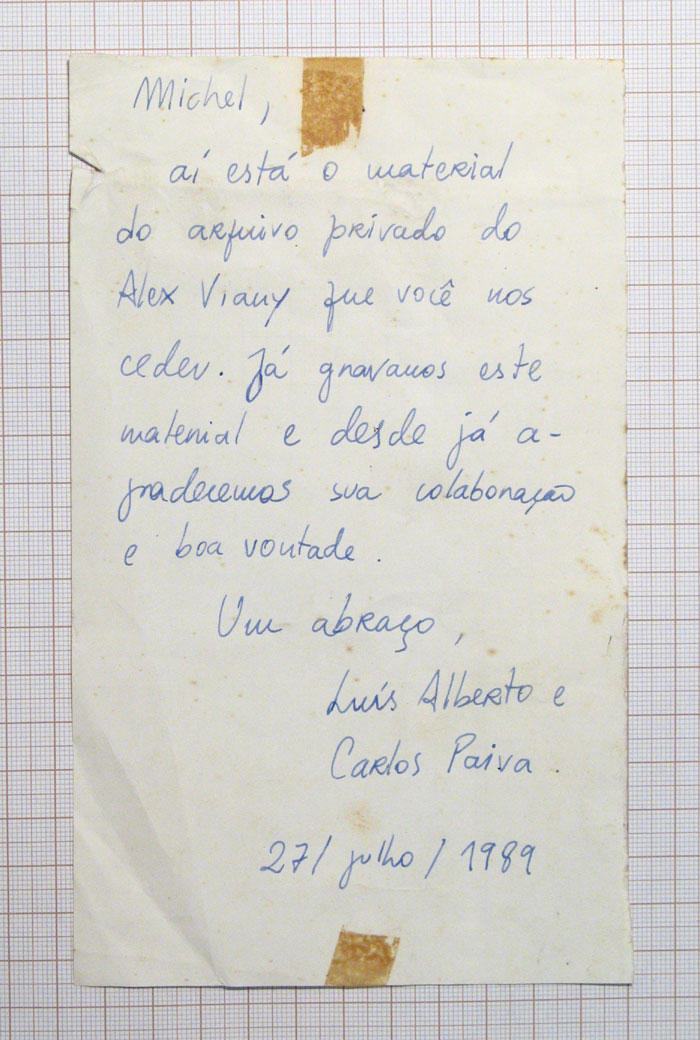 Michel,
aí está o material
do arquivo privado do
Alex Viany que você nos
cedeu. Já gravamos este
material e desde já a-
gradecemos sua colaboração
e boa vontade.
Um abraço,
Luís Alberto e
Carlos Paiva.
27/julho/1989